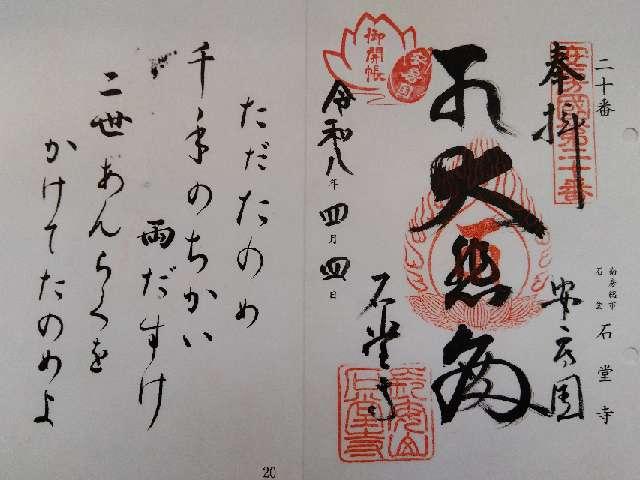 二十番
南房総市
石堂 石堂寺
安房國第二十番
奉拝
安房国
大悲殿
石堂寺
御開帳
令和八年四月四日
ただたのめ
千手のちかい
雨だすけ
二世あんらくを
かけてたのめよ
20